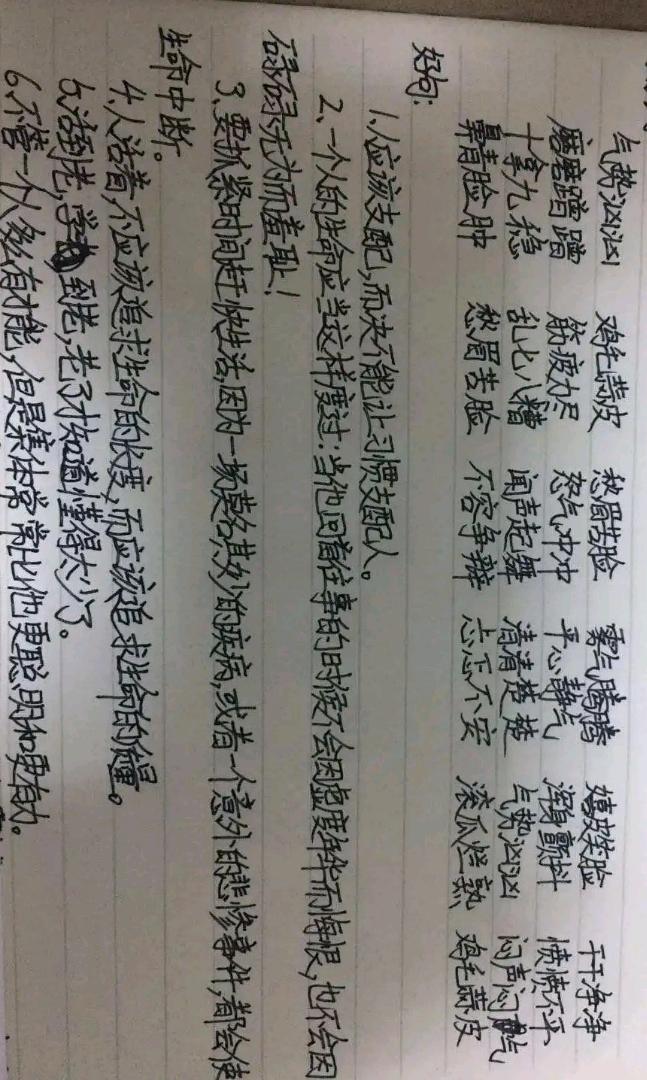 气势汹汹 鸡毛蒜皮 愁眉苦脸 雾气腾腾 嬉皮笑脸 干干净净
磨磨蹭蹭 筋疲力尽 怒气冲冲 平心静气 浑身颤抖 愤愤不平
十拿九稳 乱七八糟 闻声起舞 清清楚楚 气势汹汹 闷声闷气
鼻青脸肿 愁眉苦脸 不容争辩 忐忑不安 滚瓜烂熟 鸡毛蒜皮
好句:
1、人应该支配,而决不能让习惯支配人。
2、一个人的生命应当这样度过:当他回首往事的时候不会因虚度年华而悔恨,也不会因
碌碌无为而羞耻!
3、要抓紧时间赶快生活,因为一场莫名其妙的疾病,或者一个意外的悲惨事件,都会使
生命中断。
4、人活着,不应该追求生命的长度,而应该追求生命的质量。
5、活到老,学到老,老了才知道懂得太少了。
6、不管一个人多么有才能,但是集体常常比他更聪明和更有力。